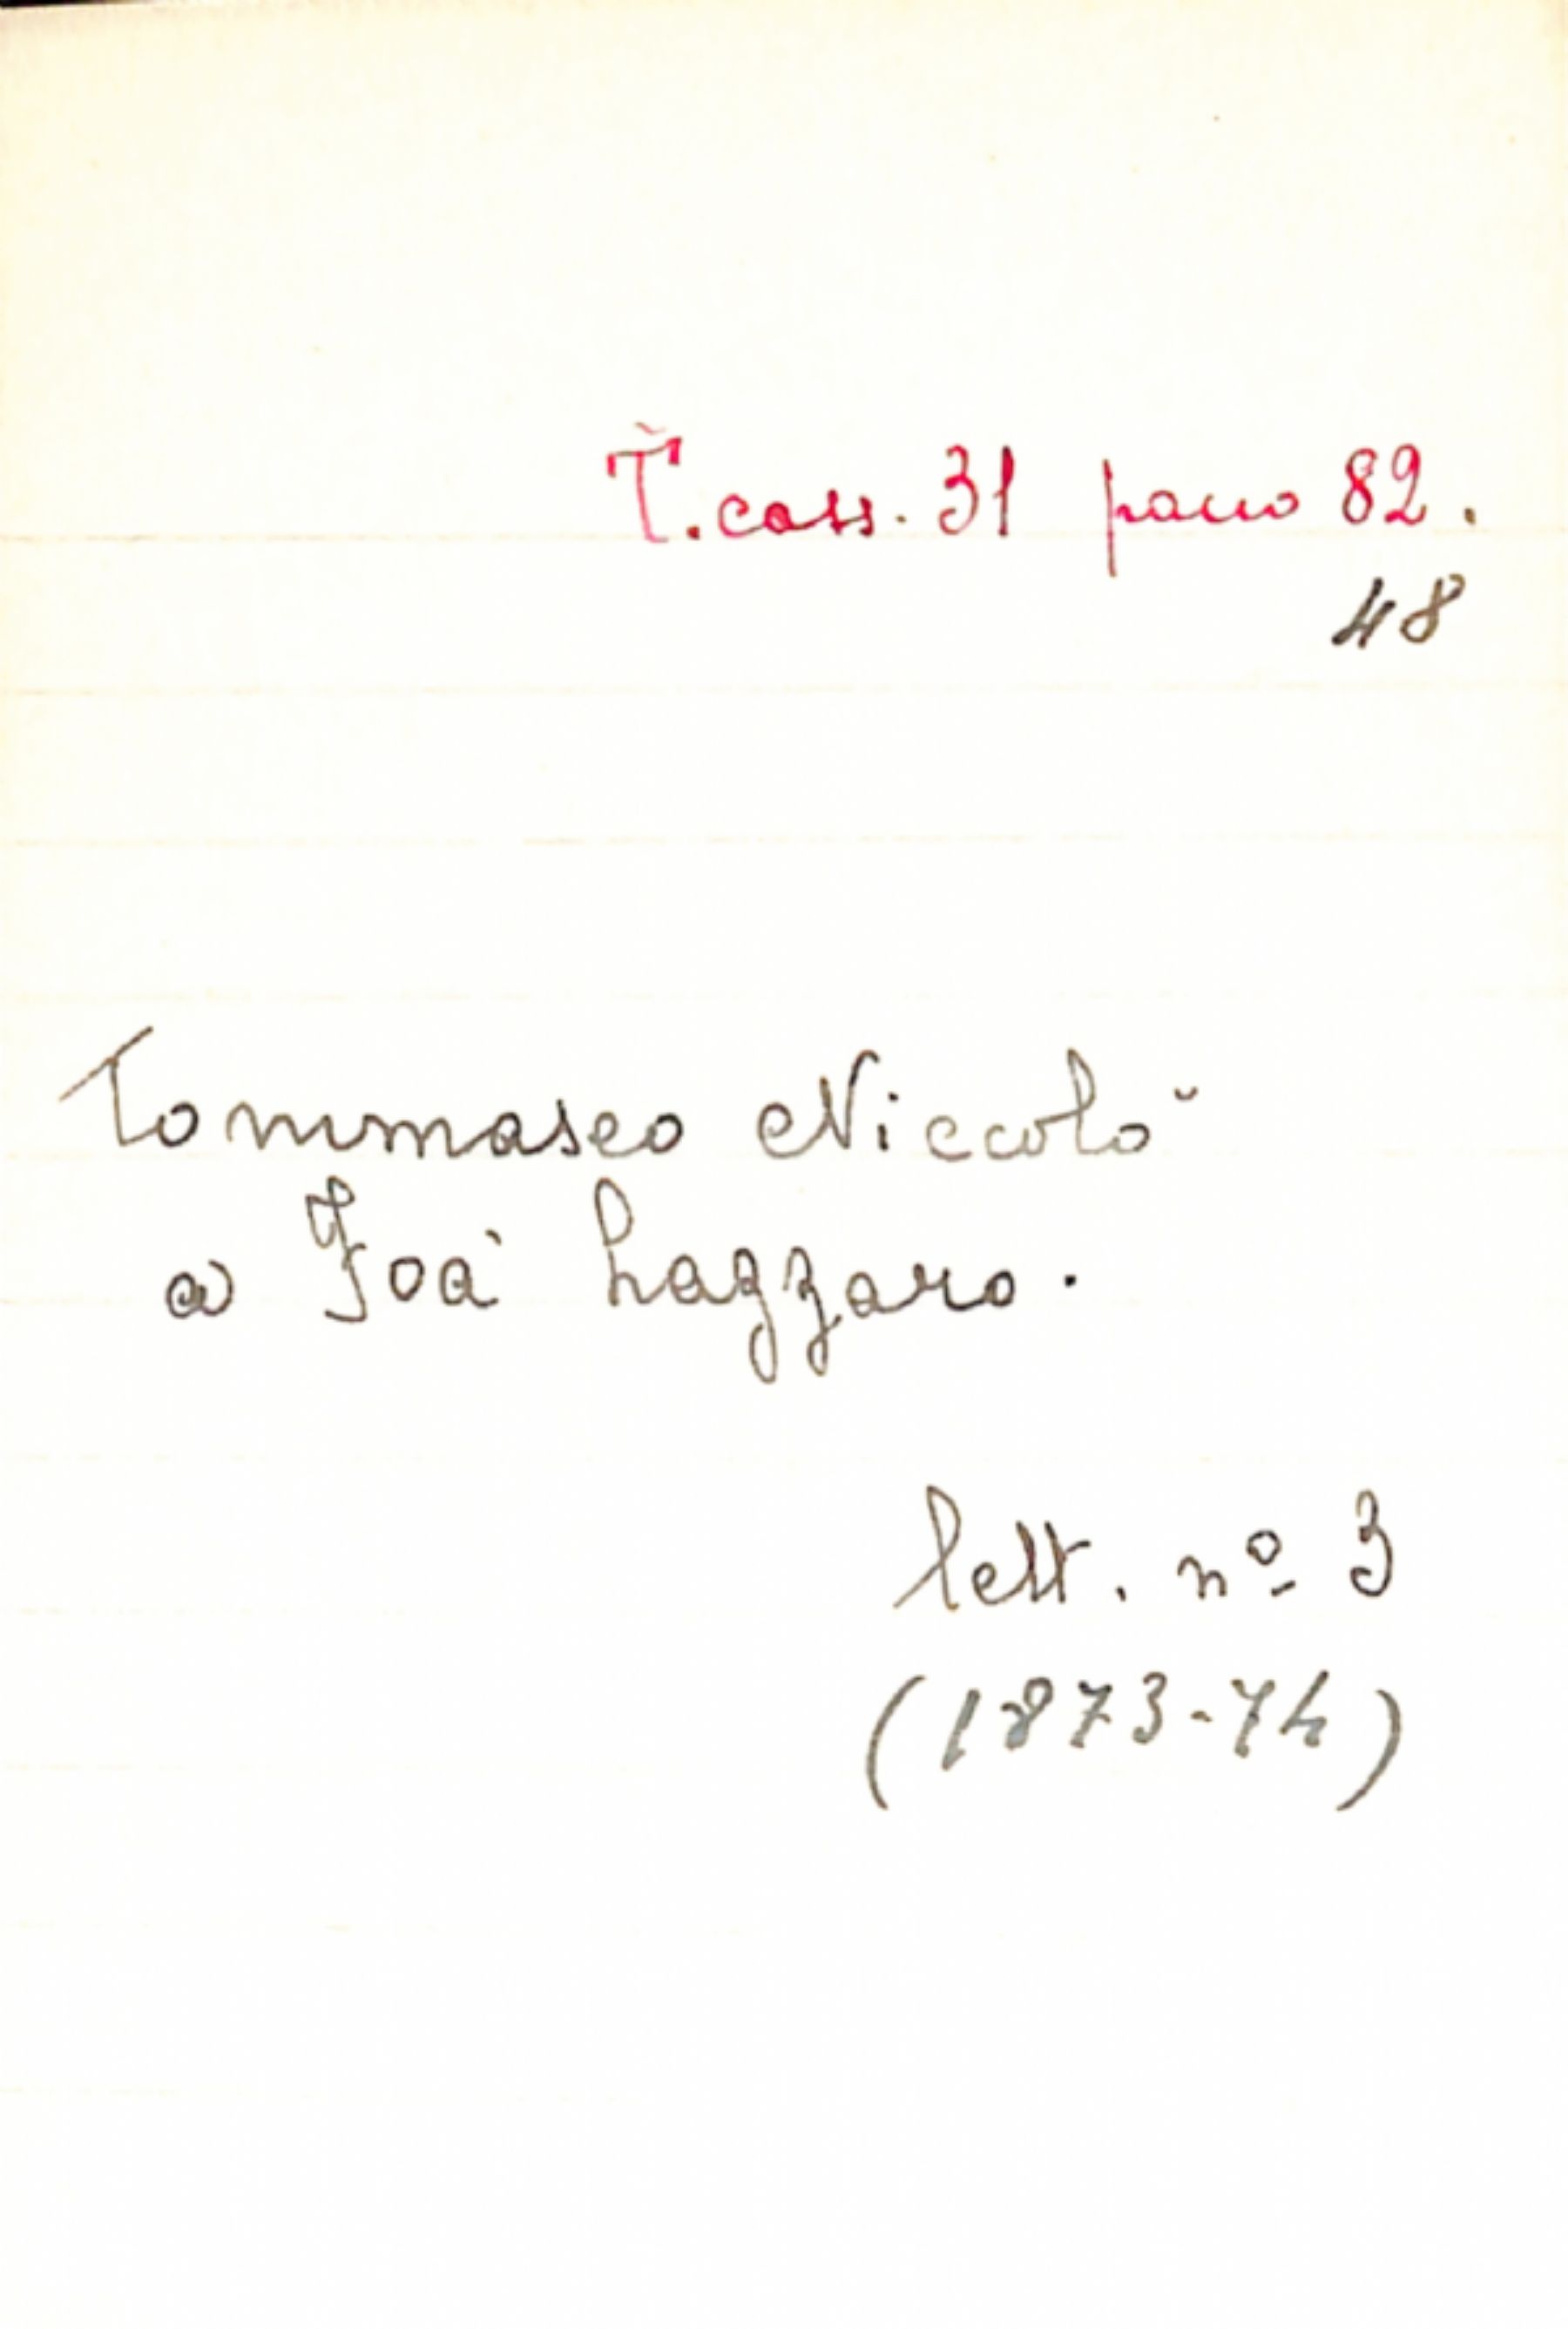 T. cass. 31 pacco 82.
48
Tommaseo Niccolò
a Joà Lazzaro.
lett. nº 3
(1873-74)